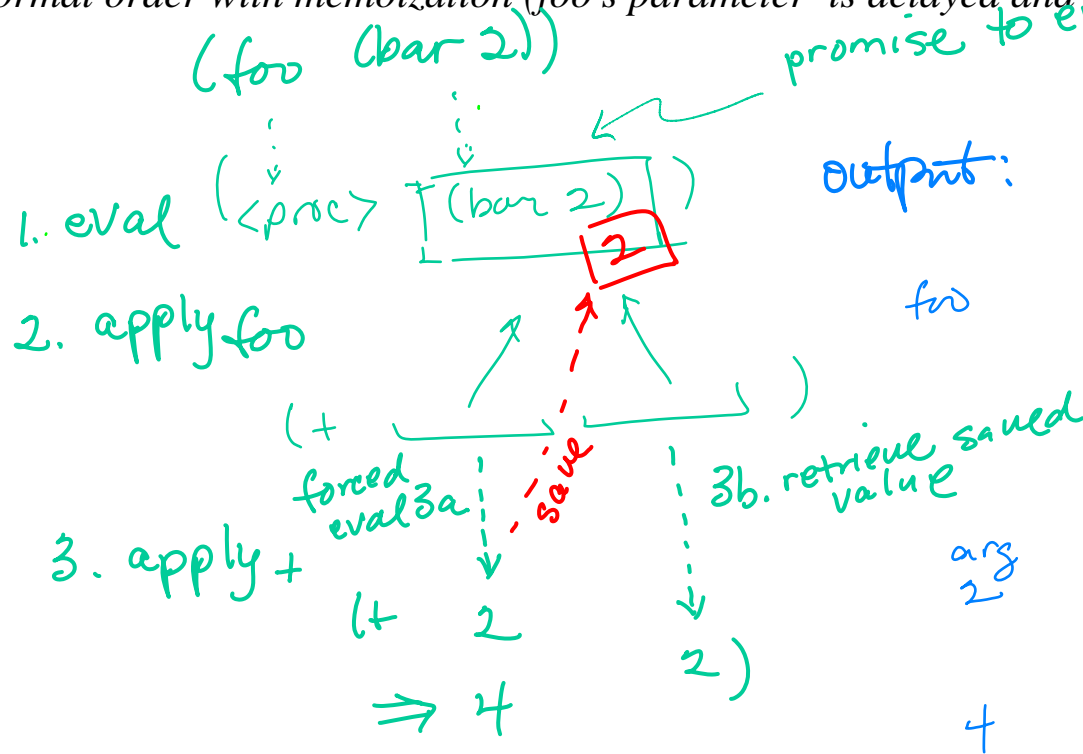 ormal order with memoization (foo's parameter is delayed and
(foo (bar 2))
promise to e
(<proc> [(bar 2)])
output:
1. eval
2
2. apply foo
foo
(+ )
forced
eval 3a
save
3b. retrieve saved
value
3. apply +
arg
2
(+ 2 2)
⇒ 4
4